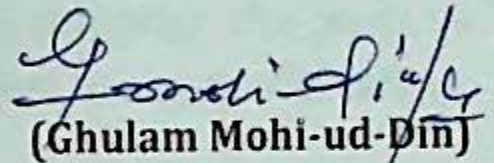 (Ghulam Mohi-ud-Din)